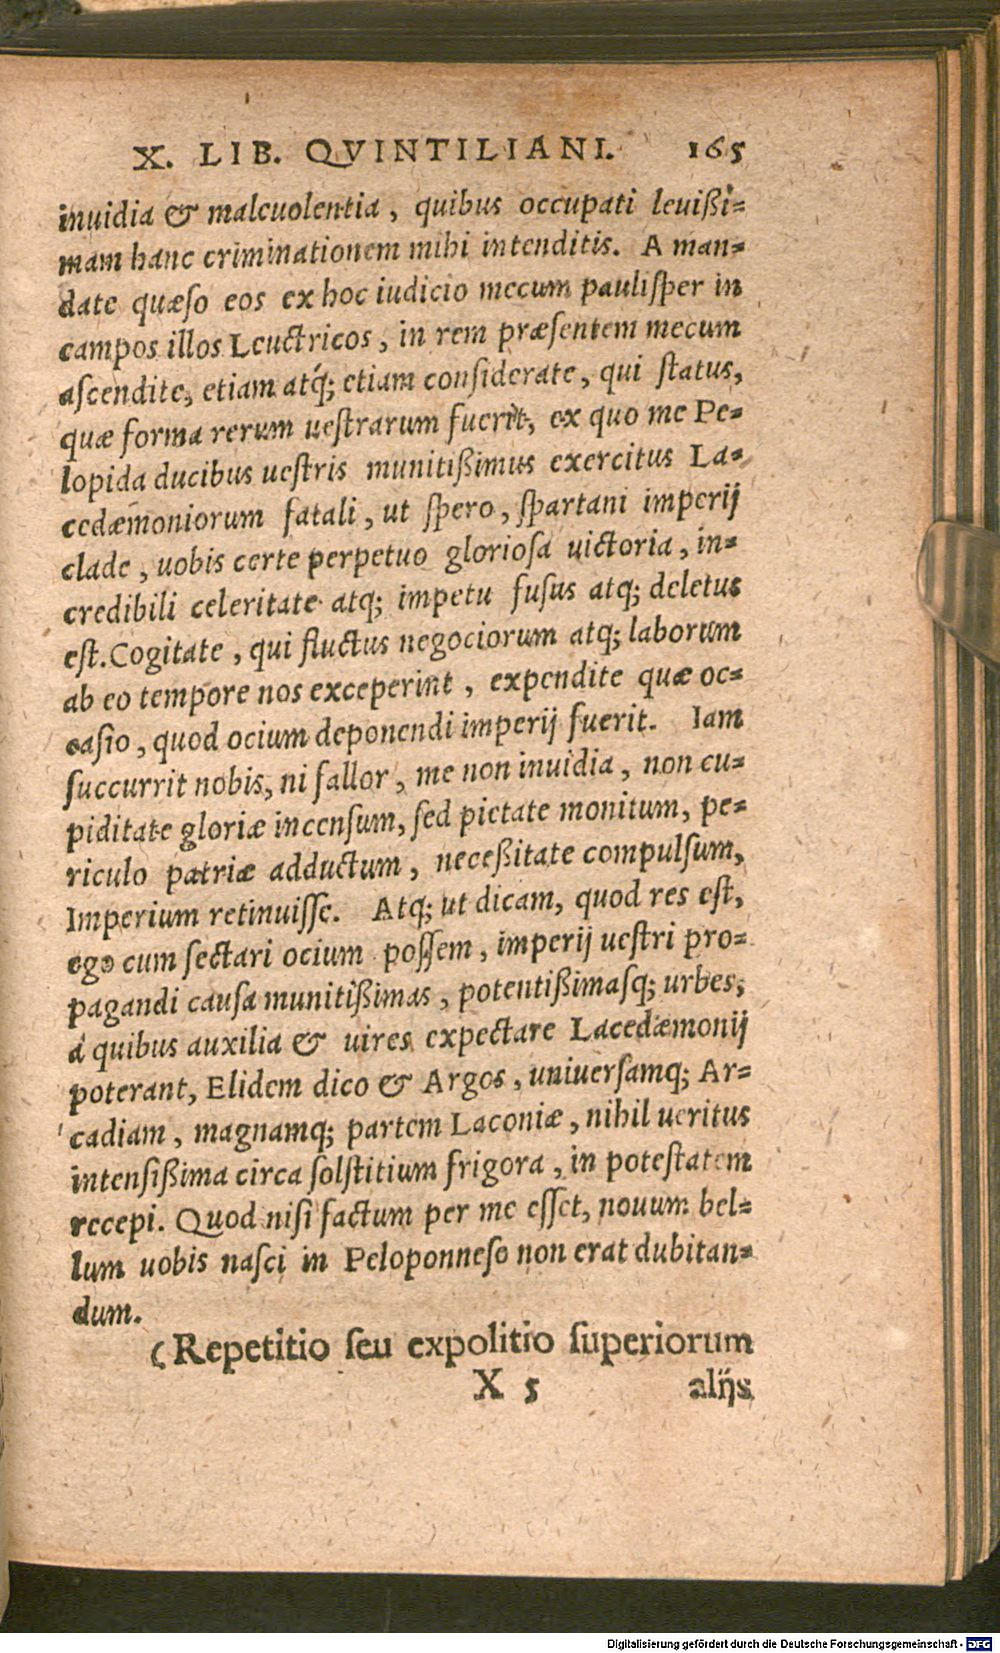 X. LIB. QVINTILIANI. 165
inuidia & maleuolentia, quibus occupati leuißi=
mam hanc criminationem mihi intenditis. A man=
date quæſo eos ex hoc iudicio mecum pauliſper in
campos illos Leuctricos, in rem præſentem mecum
aſcendite, etiam atq́; etiam conſiderate, qui ſtatus,
quæ forma rerum ueſtrarum fuerit, ex quo me Pe=
lopida ducibus ueſtris munitißimus exercitus La=
cedæmoniorum fatali, ut ſpero, ſpartani imperij
clade, uobis certe perpetuo glorioſa uictoria, in=
credibili celeritate atq; impetu fuſus atq; deletus
eſt. Cogitate, qui fluctus negociorum atq; laborum
ab eo tempore nos exceperint, expendite quæ oc=
caſio, quod ocium deponendi imperij fuerit. Iam
ſuccurrit nobis, ni fallor, me non inuidia, non cu=
piditate gloriæ incenſum, ſed pietate monitum, pe=
riculo patriæ adductum, neceßitate compulſum,
Imperium retinuiſſe. Atq; ut dicam, quod res eſt,
ego cum ſectari ocium poſſem, imperij ueſtri pro=
pagandi cauſa munitißimas, potentißimaſq; urbes,
à quibus auxilia & uires expectare Lacedæmonij
poterant, Elidem dico & Argos, uniuerſamq; Ar=
cadiam, magnamq; partem Laconiæ, nihil ueritus
intenſißima circa ſolſtitium frigora, in poteſtatem
recepi. Quod niſi factum per me eſſet, nouum bel=
lum uobis naſci in Peloponneſo non erat dubitan=
dum.
(Repetitio ſeu expolitio ſuperiorum
X 5 alijs
Digitalisierung gefördert durch die Deutsche Forschungsgemeinschaft - DFG